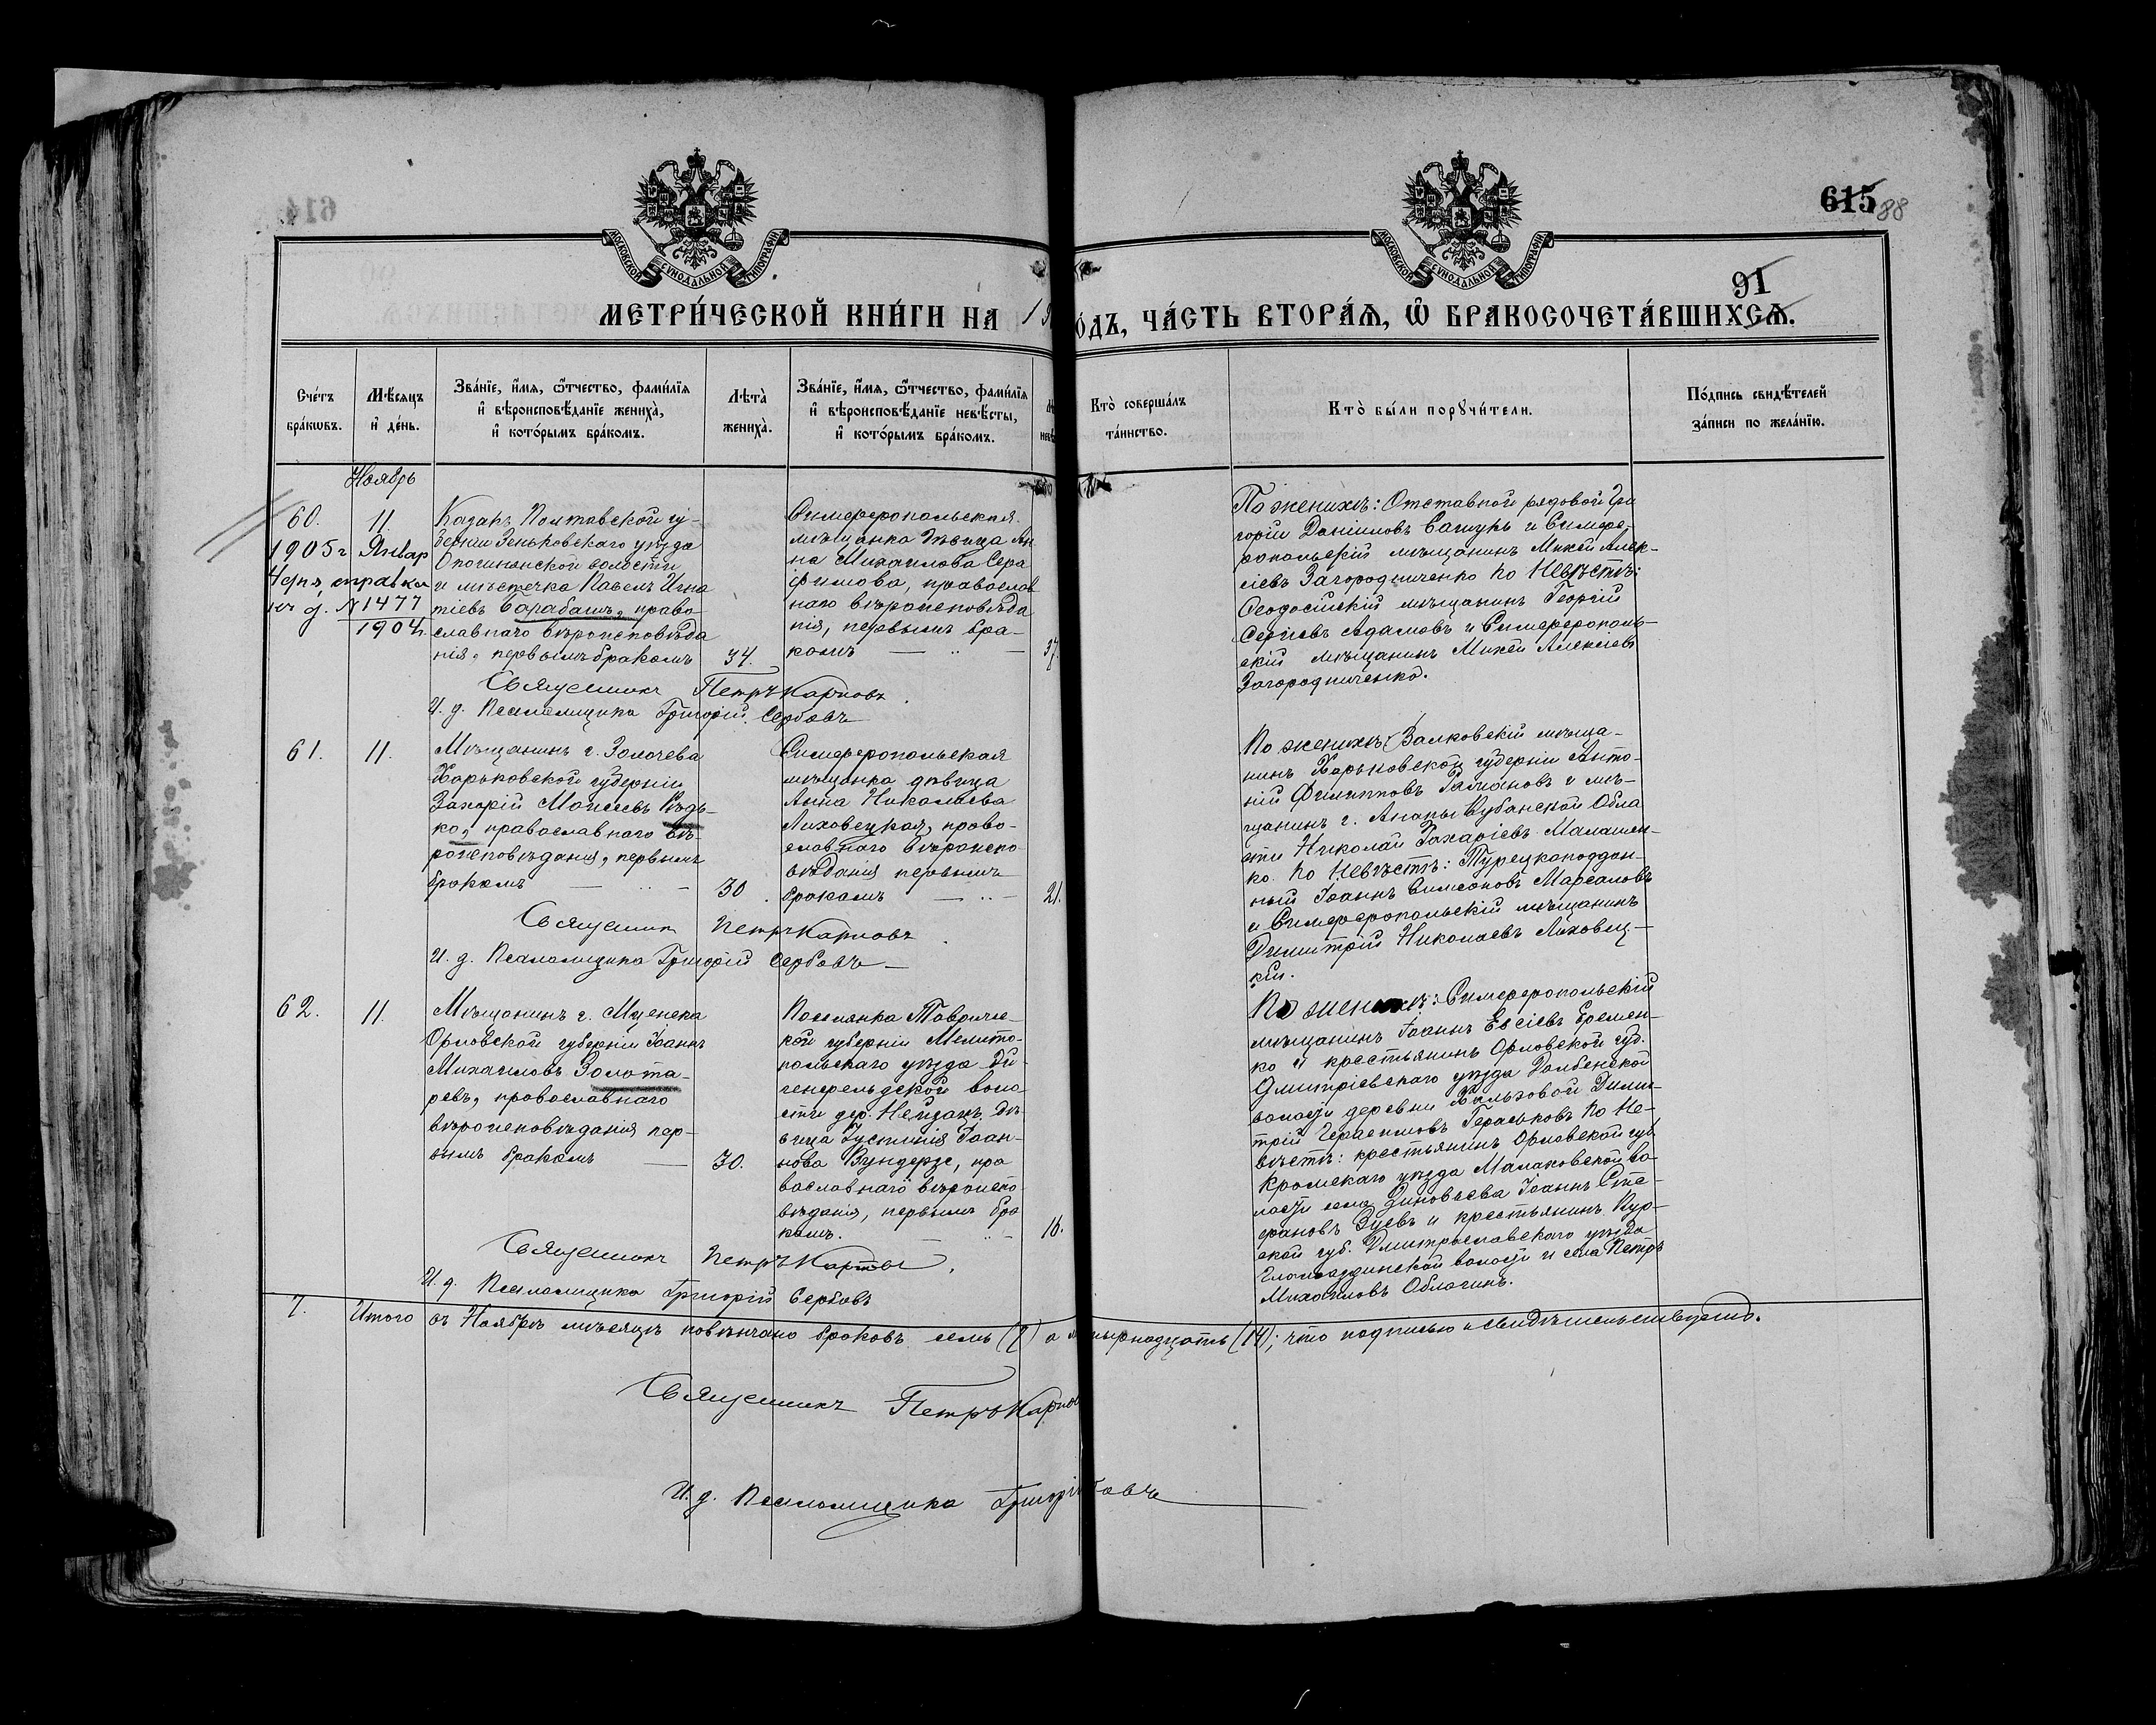 615 88
91
МОСКОВСКОЙ СУНОДАЛЬНОЙ ТИПОГРАФІИ
МОСКОВСКОЙ СУНОДАЛЬНОЙ ТИПОГРАФІИ
МЕТРИ́ЧЕСКОЙ КНИ́ГИ НА 1
О́ДЪ, ЧА́СТЬ ВТОРА́Ѧ, Ѽ БРАКОСОЧЕТА́ВШИХСѦ.
Сче́тъ бра́кωвъ.
Мѣ́сяцъ и҆ де́нь.
Зва́нїе, и҆́мѧ, ѻ҆́тчество, фами́лїѧ
и҆ вѣроисповѣ́данїе жениха̀,
и҆ кото́рымъ бра́комъ.
Лѣта̀ жениха̀.
Зва́нїе, и҆́мѧ, ѻ҆́тчество, фами́лїѧ
и҆ вѣроисповѣ́данїе невѣ́сты,
и҆ кото́рымъ бра́комъ.
Кто̀ соверша́лъ та́инство.
Кто̀ бы́ли порꙋчи́тели.
По́дпись свидѣ́телей
за́писи по жела́нїю.
Ноябрь
60.
11.
1905 г Январ
4 дня, справка
№ 1477
1904 г.
Казакъ Полтавской гу-
берніи Зеньковскаго уѣзда
Опошнянской волости
и мѣстечка Павелъ Игна
тіевъ Барабашъ, право-
славнаго вѣроисповѣда
нія, первымъ бракомъ
34.
Симферопольская
мѣщанка дѣвица Ан
на Михаилова Сера
фимова, православ
наго вѣроисповѣда
нія, первымъ бра-
комъ
37.
По женихѣ: Отставной рядовой Гри
горій Даніиловъ Сащукъ и Симфе-
ропольскій мѣщанинъ Михей Алек-
сіевъ Загородниченко По Невѣстѣ:
Ѳеодосійскій мѣщанинъ Георгій
Сергіевъ Адамовъ и Симферополь-
скій мѣщанинъ Михей Алексіевъ
Загородниченко.
Священникъ Петръ Карповъ.
И. д. Псаломщика Григорій Сербовъ
61.
11.
Мѣщанинъ г. Золочева
Харьковской губерніи
Захарій Моисеевъ Рѣдь-
ко, православнаго вѣ-
роисповѣданія, первымъ
бракомъ
30.
Симферопольская
мѣщанка дѣвица
Анна Николаева
Лиховецкая, право-
славнаго вѣроиспо-
вѣданія первымъ
бракомъ
21.
По женихѣ: Валковскій мѣща-
нинъ Харьковской губерніи Анто-
ній Филипповъ Галмановъ и мѣ-
щанинъ г. Анапы Кубанской Обла
сти Николай Захаріевъ Малашен-
ко. По Невѣстѣ: Турецкоподдан-
ный Іоаннъ Симеоновъ Марсаловъ
и Симферопольскій мѣщанинъ
Димитрій Николаевъ Лиховец-
кій.
Священникъ Петръ Карповъ.
И. д. Псаломщика Григорій Сербовъ
62.
11.
Мѣщанинъ г. Мценска
Орловской губерніи Іоаннъ
Михаиловъ Золота-
ревъ, православнаго
вѣроисповѣданія пер-
вымъ бракомъ
30.
Поселянка Тавриче-
кой губерніи Мелито-
польскаго уѣзда Эй-
генфельдской воло
сти дер. Нейдакъ дѣ
вица Густинія Іоан-
нова Вундерзе, пра
вославнаго вѣроиспо
вѣданія, первымъ бра
комъ.
18.
По женихѣ: Симферопольскій
мѣщанинъ Іоаннъ Евсіевъ Еремен-
ко и крестьянинъ Орловской губ.
Дмитріевскаго уѣзда Долбенской
волости деревни Хальзовой Дими-
трій Герасимовъ Гераськовъ По Не-
вѣстѣ: крестьянинъ Орловской губ
Кромскаго уѣзда Малаковской во-
лости села Зиновьева Іоаннъ Сте-
фановъ Зуевъ и крестьянинъ Кур-
ской губ. Дмитріевскаго уѣзда
волости и села Петръ
Михаиловъ Облогинъ.
Священникъ Петръ Карповъ.
И. д. Псаломщика Григорій Сербовъ
7. Итого въ Ноябрѣ мѣсяцѣ повѣнчано браковъ семь (7) а тырнадцать (14); что подписью и свидѣтельствуемъ.
Священникъ Петръ Карпов
И. д. Псаломщика Григорі бовъ